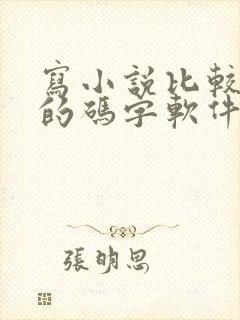 寫小說比較
的碼字軟件
張明思